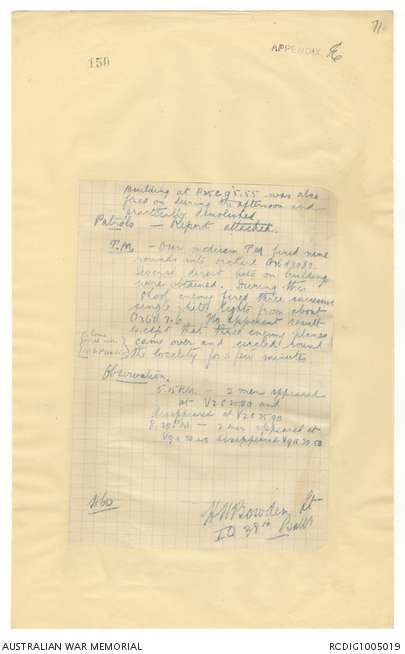 71
APPENDIX
150
Building at P25c 95.55 was also
fired on during the afternoon and
practically demolished.
Patrols — Report attached.
T.M. — Our medium T.M. fired nine
rounds into orchard
Several direct hits on building
were obtained. During this
shoot enemy fired three successive
single white lights from about
No apparent result
except that three enemy planes
came over and circled round
the locality for a few minutes
Observation.
5.15 P.M. — 2 men appeared
at V2c 20.80 and
disappeared at V2c 75.90
8.20 PM — 2 men appeared at
disappeared
Bowden Lt
I.O. 38th Battn
AUSTRALIAN WAR MEMORIAL
RCDIG1005019